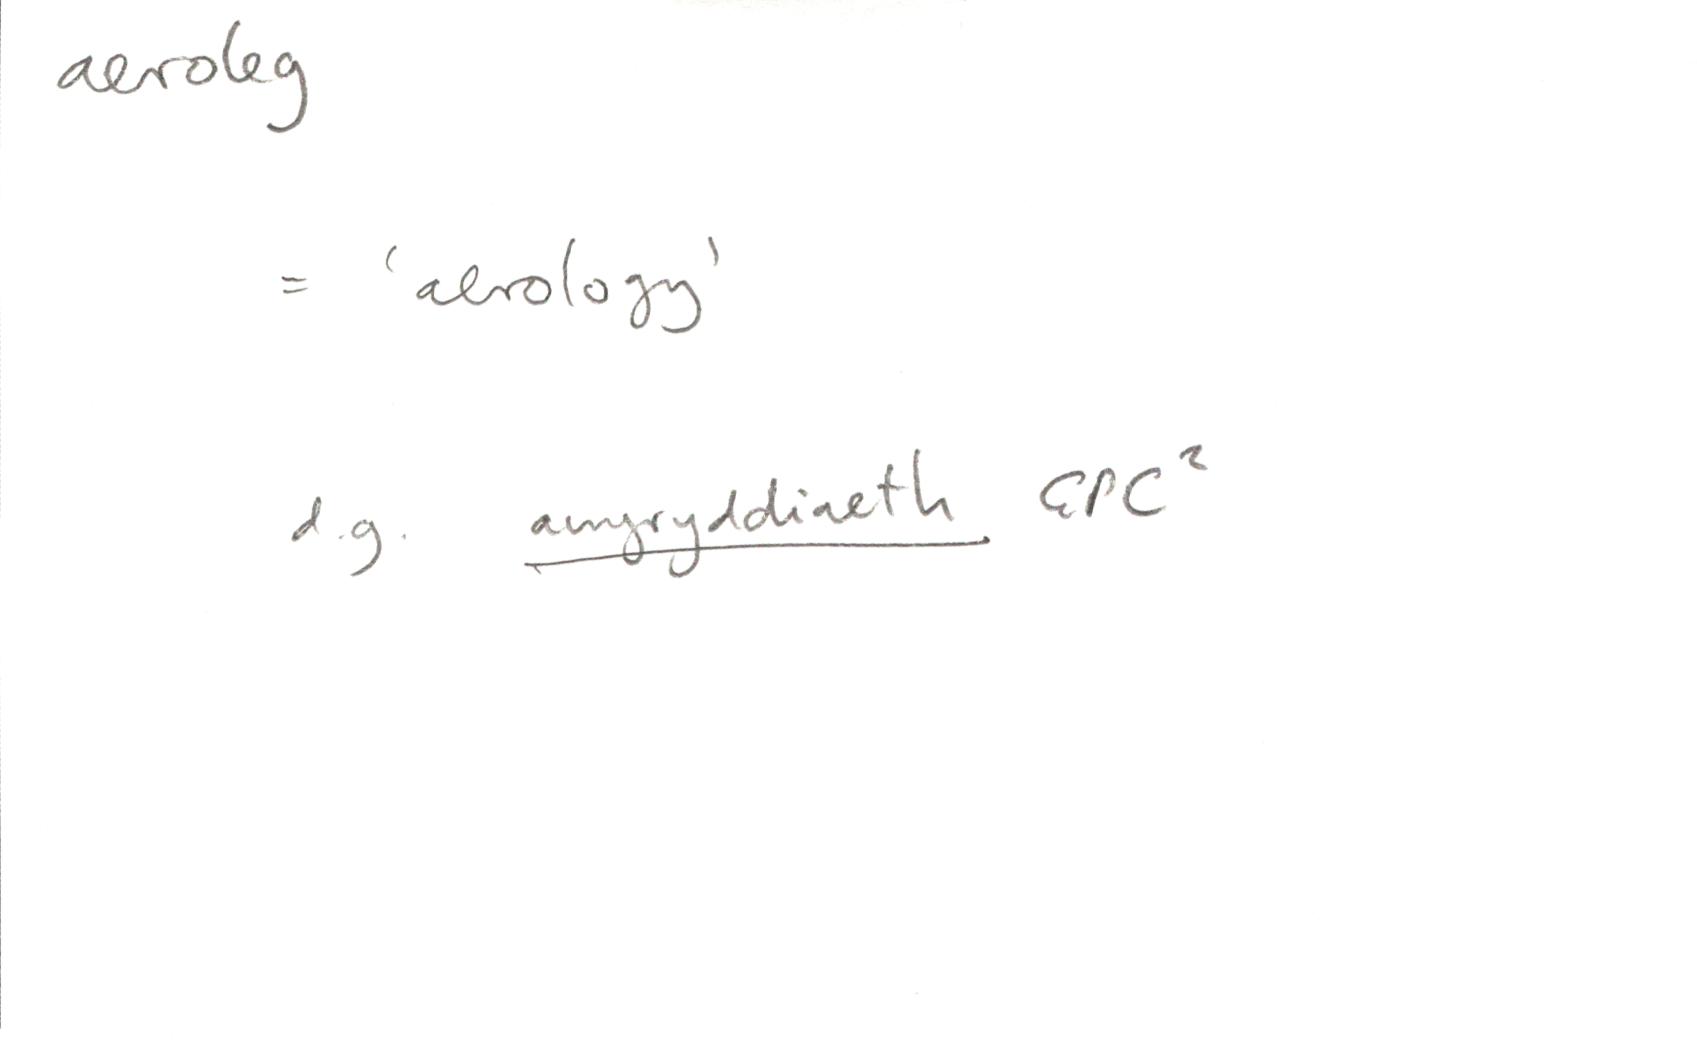 aeroleg
= 'aerology'
d.g. awyryddiaeth GPC²